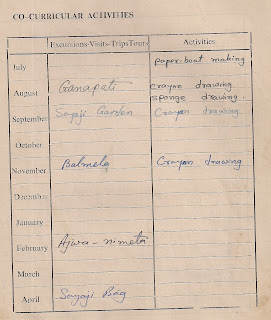 CO-CURRICULAR ACTIVITIES
Excursions-Visits-Trips Tours Activities
July paper-boat making
August Ganapati crayon drawing
sponge drawing.
September Sayaji Garden Crayon drawing
October
November Balmela Crayon drawing
December
January
February Ajwa-nimeta
March
April Sayaji Bag